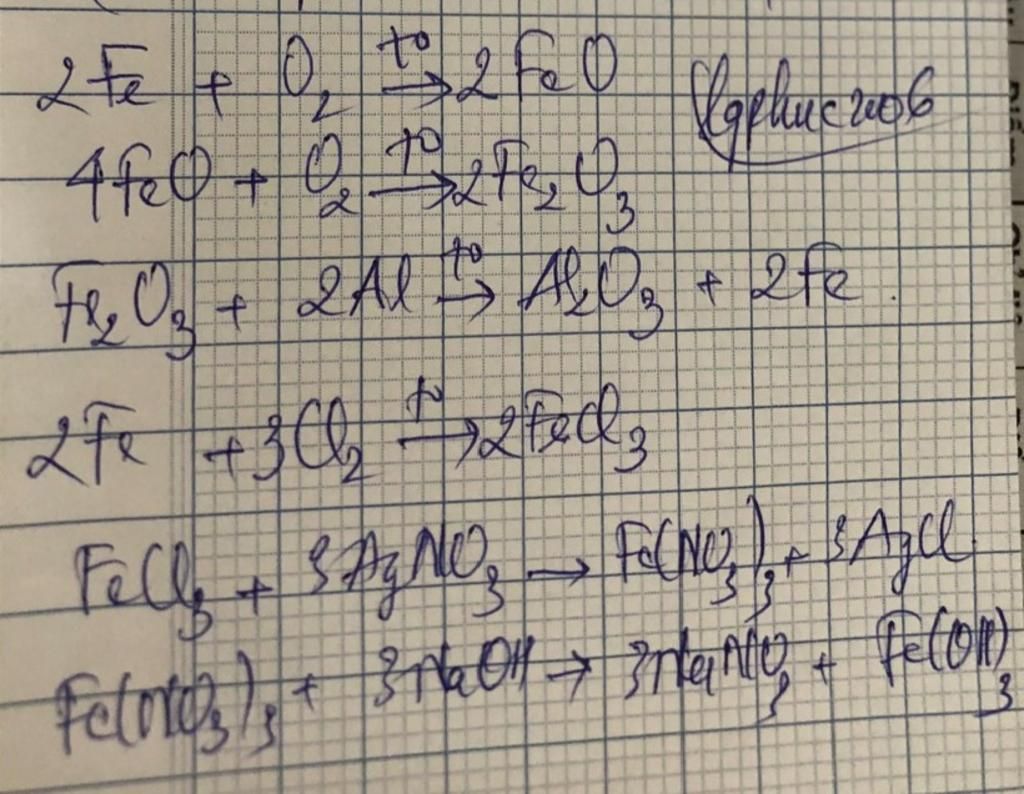 2Fe + O₂ →t° 2FeO
4FeO + O₂ →t° 2Fe₂O₃
Fe₂O₃ + 2Al →t° Al₂O₃ + 2Fe.
2Fe + 3Cl₂ →t° 2FeCl₃
FeCl₃ + 3AgNO₃ → Fe(NO₃)₃ + 3AgCl
Fe(NO₃)₃ + 3NaOH → 3NaNO₃ + Fe(OH)₃